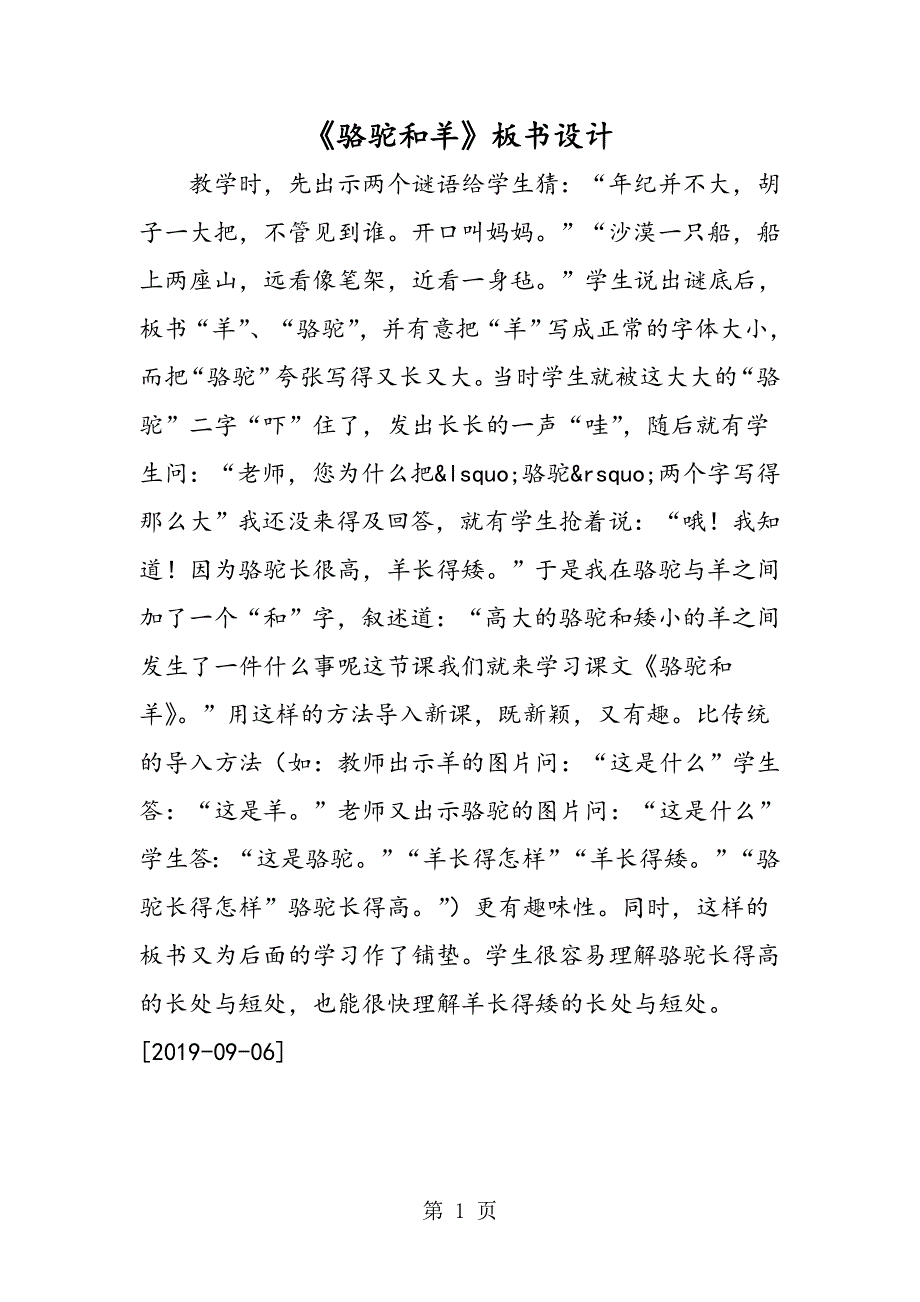 《骆驼和羊》板书设计
教学时，先出示两个谜语给学生猜：“年纪并不大，胡
子一大把，不管见到谁。开口叫妈妈。”“沙漠一只船，船
上两座山，远看像笔架，近看一身毡。”学生说出谜底后，
板书“羊”、“骆驼”，并有意把“羊”写成正常的字体大小，
而把“骆驼”夸张写得又长又大。当时学生就被这大大的“骆
驼”二字“吓”住了，发出长长的一声“哇”，随后就有学
生问：“老师，您为什么把&lsquo;骆驼&rsquo;两个字写得
那么大”我还没来得及回答，就有学生抢着说：“哦！我知
道！因为骆驼长很高，羊长得矮。”于是我在骆驼与羊之间
加了一个“和”字，叙述道：“高大的骆驼和矮小的羊之间
发生了一件什么事呢这节课我们就来学习课文《骆驼和
羊》。”用这样的方法导入新课，既新颖，又有趣。比传统
的导入方法（如：教师出示羊的图片问：“这是什么”学生
答：“这是羊。”老师又出示骆驼的图片问：“这是什么”
学生答：“这是骆驼。”“羊长得怎样”“羊长得矮。”“骆
驼长得怎样”骆驼长得高。”）更有趣味性。同时，这样的
板书又为后面的学习作了铺垫。学生很容易理解骆驼长得高
的长处与短处，也能很快理解羊长得矮的长处与短处。
[2019-09-06]
第 1 页